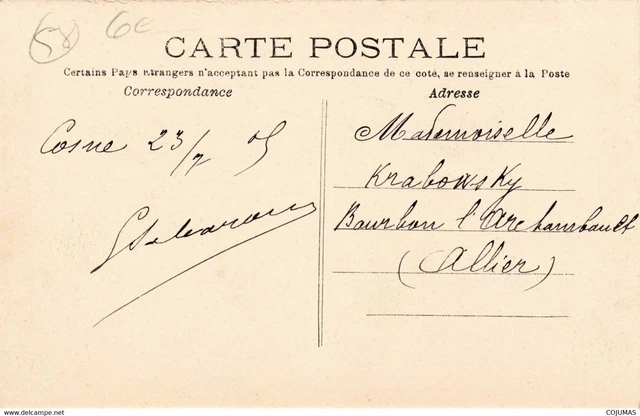 58
6e
CARTE POSTALE
Certains Pays Etrangers n'acceptant pas la Correspondance de ce coté, se renseigner à la Poste
Correspondance
Adresse
Cosne 23/7 05
Mademoiselle
Krabowsky
Bourbon l'Archambault
(Allier)
www.delcampe.net
COJUMAS